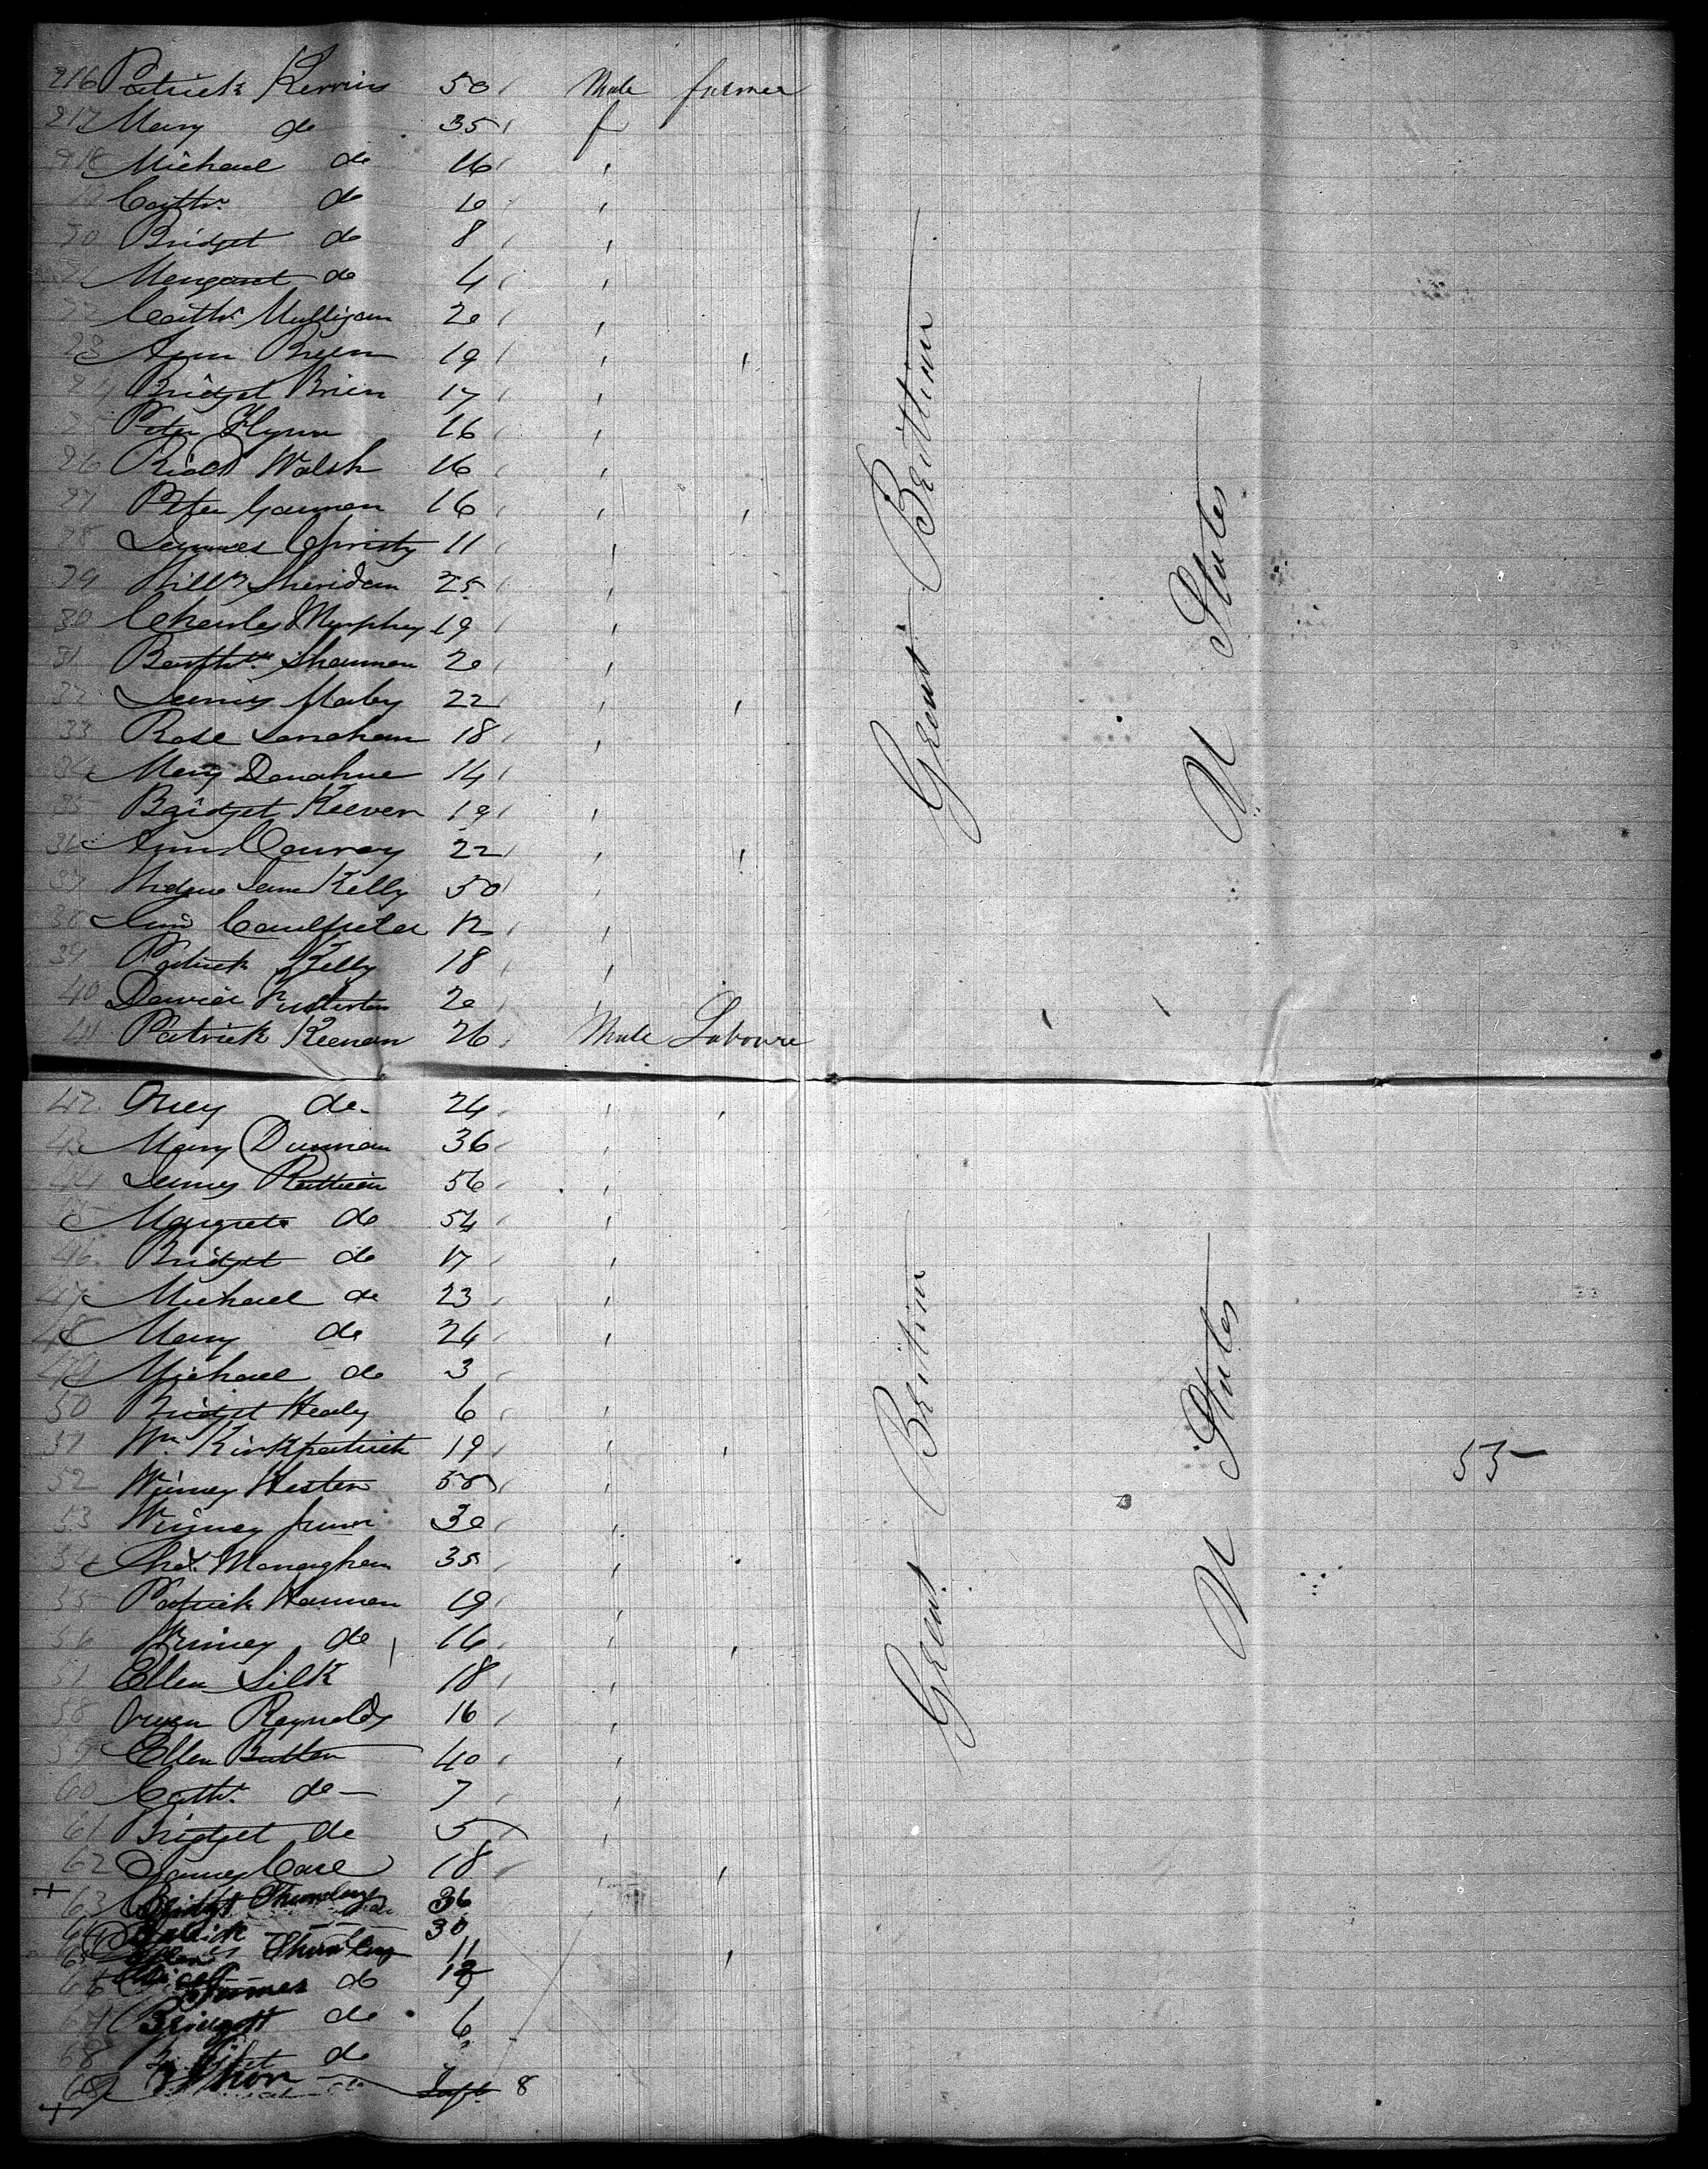 216 Patrick Kerrins 50 Male farmer
217 Mary do 35 f
218 Michael do 16
19 Cathr. do 10
20 Bridget do 8
21 Margaret do 4
22 Cathr. Mulligan 20
23 Ann Breen 19
24 Bridget Brien 17
25 Peter Flynn 16
26 Richd Walsh 16
27 Peter Gannon 16
28 James Christy 11
29 Willm Sheridan 25
30 Charles Murphy 19
31 Barthw. Shannon 20
32 James Maby 22
33 Rose Lanahan 18
34 Mary Donahue 14
35 Bridget Keeven 19
36 Ann Conray 22
37 Kelly 50
38 Caulfield 12
39 Patrick Kelly 18
40 20
41 Patrick Keenan 26 Male Laboure
Great Brittian
U States
42 do 24
43 Mary Dunnan 36
44 James 56
45 Margrete do 54
46 Bridget do 17
47 Michael do 23
48 Mary do 24
49 Michael do 3
50 Bridget Healy 6
51 Wm Kirkpatrick 19
52 Winney Hester 50
53 Winney Junior 30
54 Monaghan 35
55 Patrick Hannon 19
56 Winney do 16
57 Ellen Silk 18
58 Owen Reynolds 16
59 Ellen Butler 40
60 Cathr. do 7
61 Bridget do 5
62 James Case 18
63 Bridgt 36
64 Patrick 30
65 11
66 James do 12
67 do 6
68 do
69 Inft 8
Great Brittian
U States
53